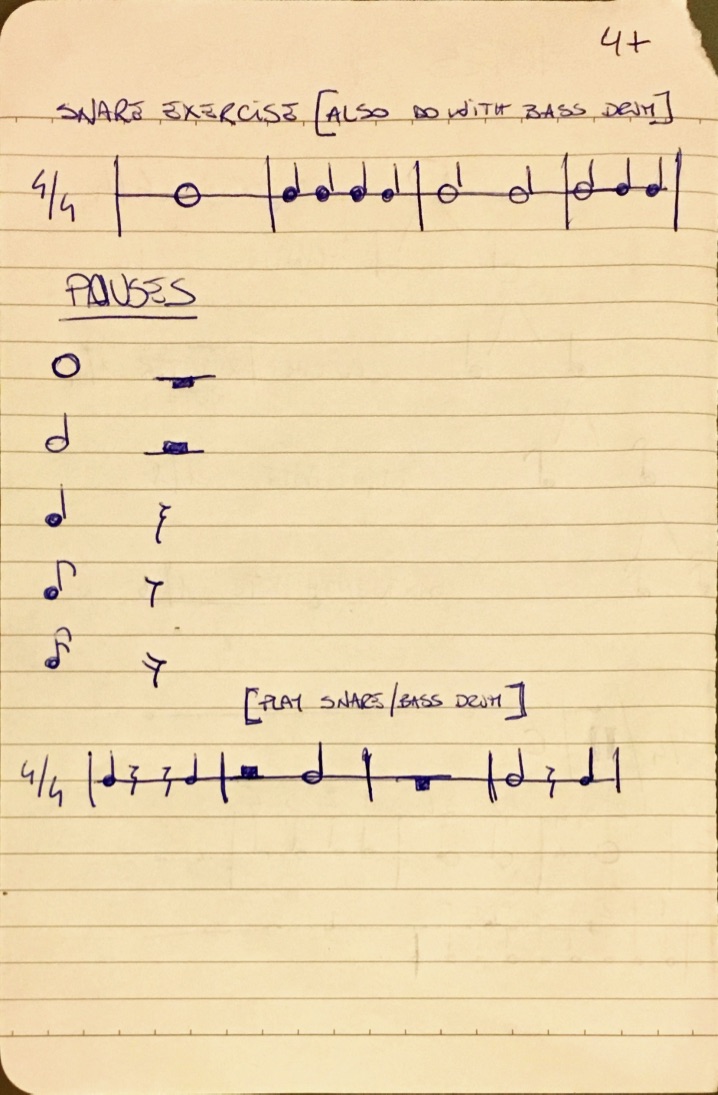 4+
SNARE EXERCISE [ALSO DO WITH BASS DRUM]
4/4
PAUSES
[PLAY SNARE/BASS DRUM]
4/4